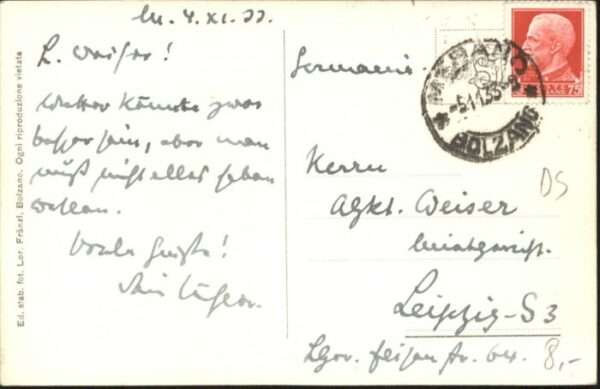 M. 4.XI.33.
L. Weiser!
Wetter könnte zwar
besser sein, aber man
muß nicht alles haben
wollen.
Viele Grüße!
Germania
MERANO
-5.11.33-
BOLZANO
75
Herrn
Weiser
Leipzig-S3
str. 64.
8,-
DS
Ed. stab. fot. Lor. Fränzl, Bolzano. Ogni riproduzione vietata